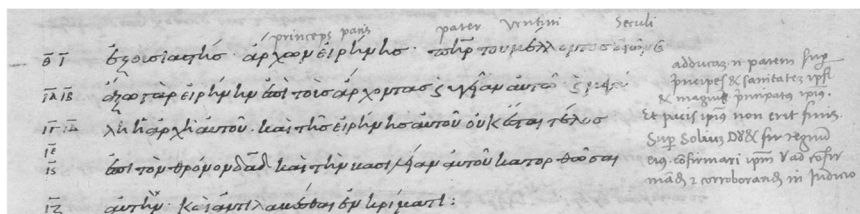 princeps pacis pater venturi seculi
θ ι ἐξουσιαστής· ἄρχων εἰρήνης· πατὴρ τοῦ μέλλοντος
ια ιβ ἄξω γὰρ εἰρήνην ἐπὶ τοὺς ἄρχοντας ϛ ὑγείαν αὐτῶ ϛ μεγά
ιγ ιδ λη ἡ ἀρχὴ αὐτοῦ· καὶ τῆς εἰρήνης αὐτοῦ οὐκ ἔσται τέλος
ιε
ιϛ ἐπὶ τὸν θρόνον δαδ καὶ τὴν βασιλείαν αὐτοῦ κατορθῶσαι
ιζ αὐτὴν· καὶ ἀντιλαβέσθαι ἐν κρίματι:
adducam n. pacem sup
principes & sanitatem ipsi
& magnus principatus ipius.
Et pacis ipius non erit finis.
Sup Solium & sup regnum
eius. cōfirmari ipm ad cōfir
mand & corroborand in Iudicio